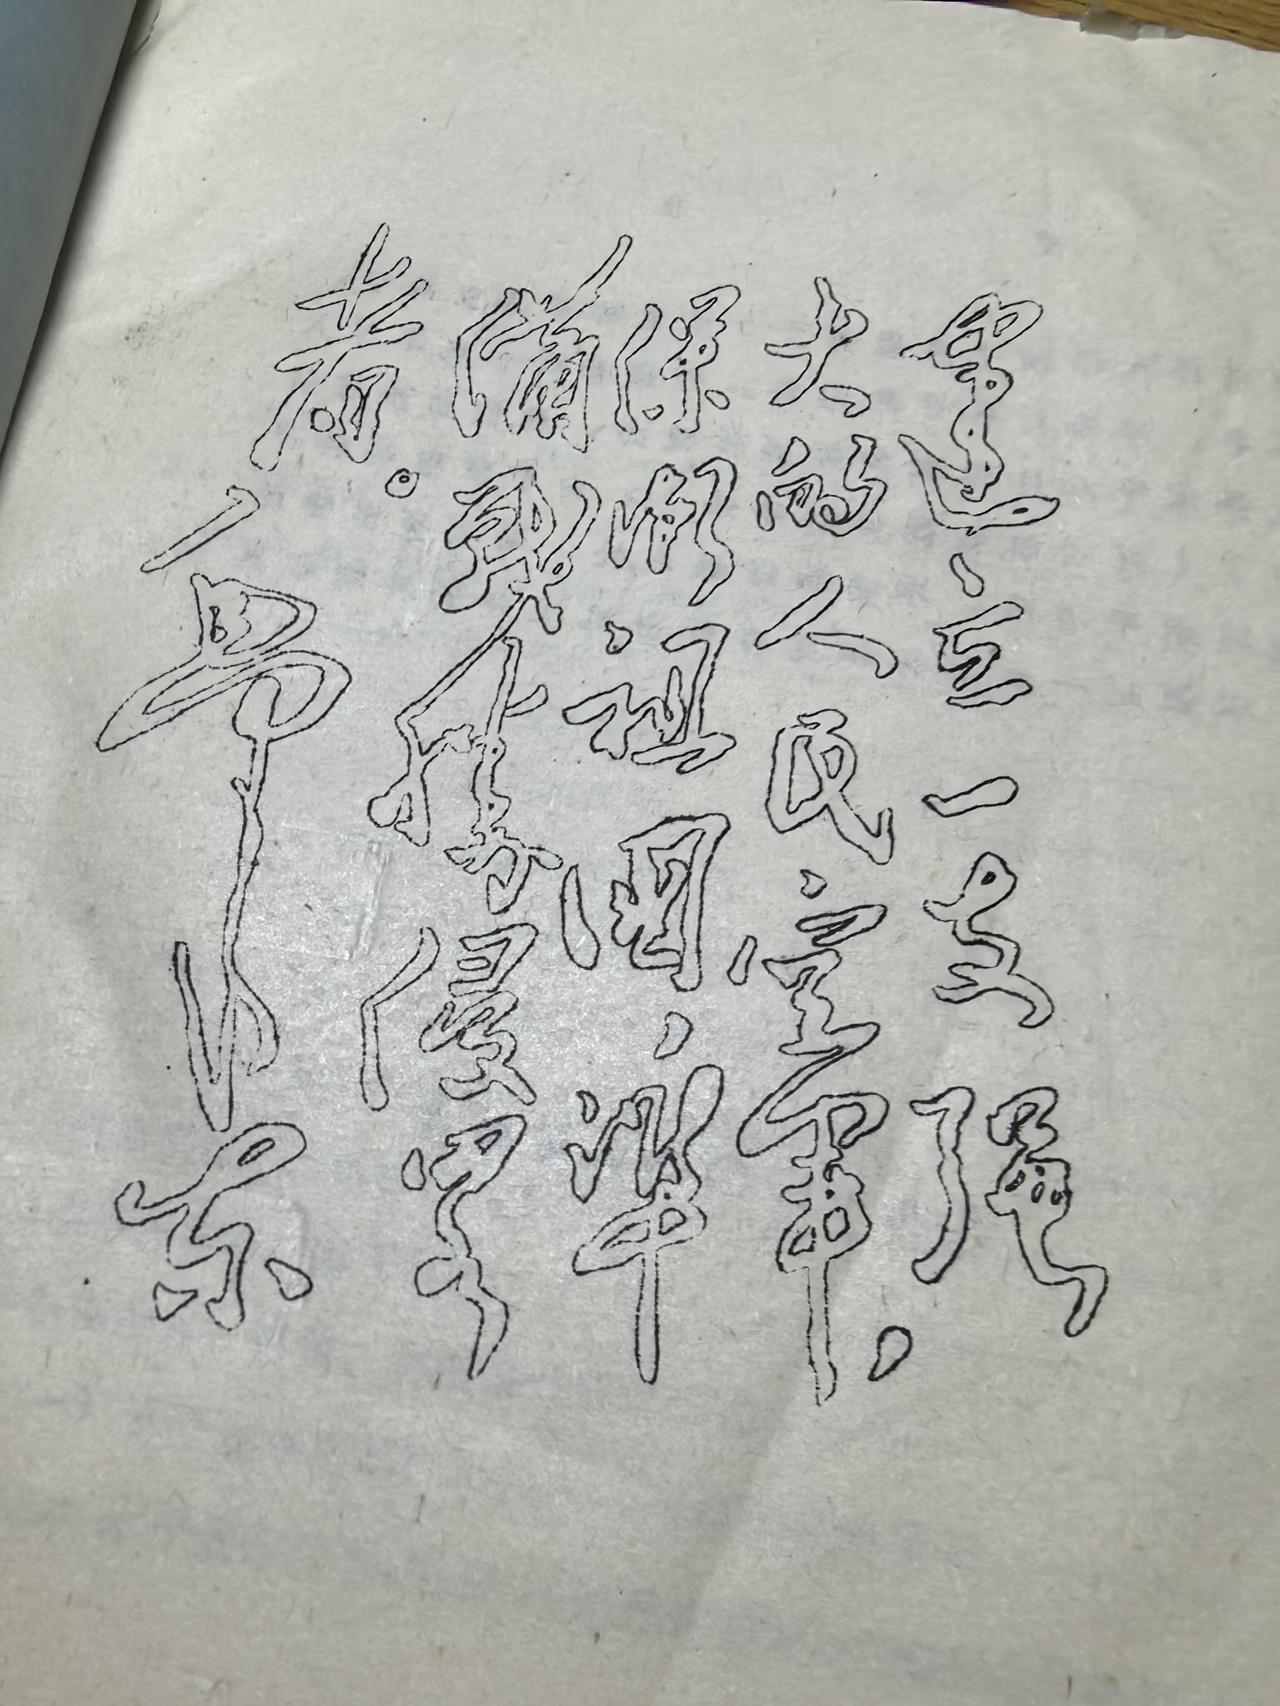 建立一支强
大的人民空军，
保卫祖国，准
备战勝侵略
者。
毛泽东